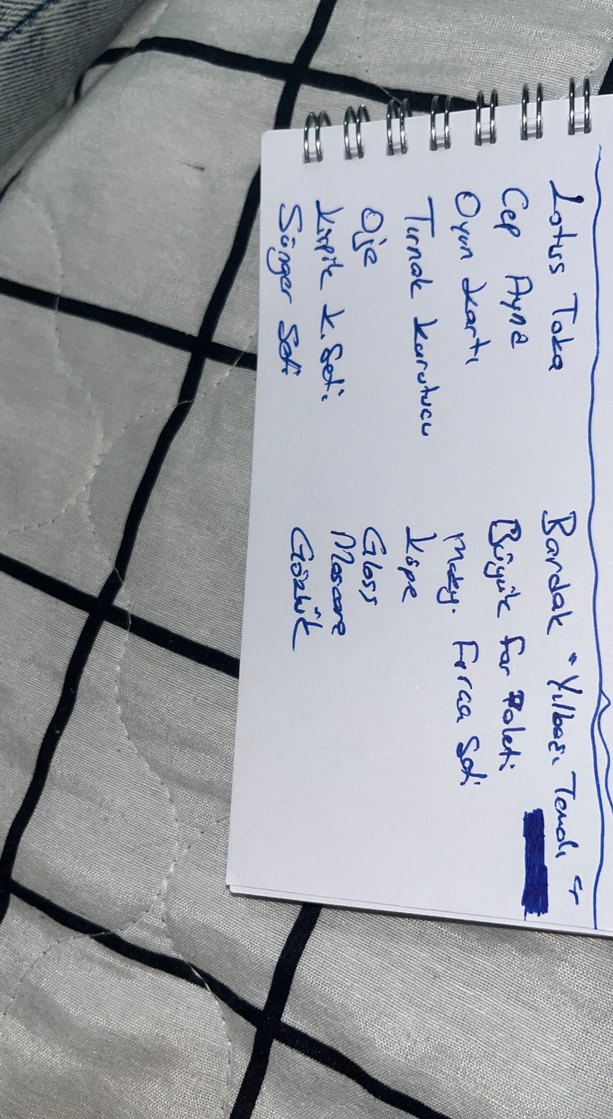 Lotus Toka
Cep Ayna
Oyun Kartı
Tırnak Kurutucu
Oje
Kirpik K. Seti
Sünger Seti
Bardak • Yılbaşı Temalı
Büyük Far Paleti
Maky. Fırça Seti
Küpe
Gloss
Mascara
Gözlük